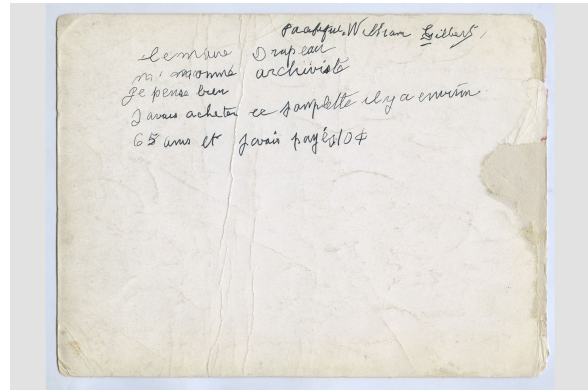 William Gilbert,
le maire Drapeau
m'nommé archiviste
je pense bien
J avais acheter ce pamplette il y a environ
65 ans et j avais payés 10¢